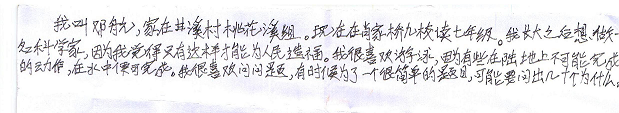 我叫邓航,家在井溪村桃花溪组。现在在肖家桥九校读七年级。我长大之后想做一
名科学家,因为我觉得只有这样才能为人民造福。我很喜欢游泳,因为有些在陆地上不可能完成
的动作,在水中便可完成。我很喜欢问问题,有时候为了一个很简单的题目,可能要问出几十个为什么。